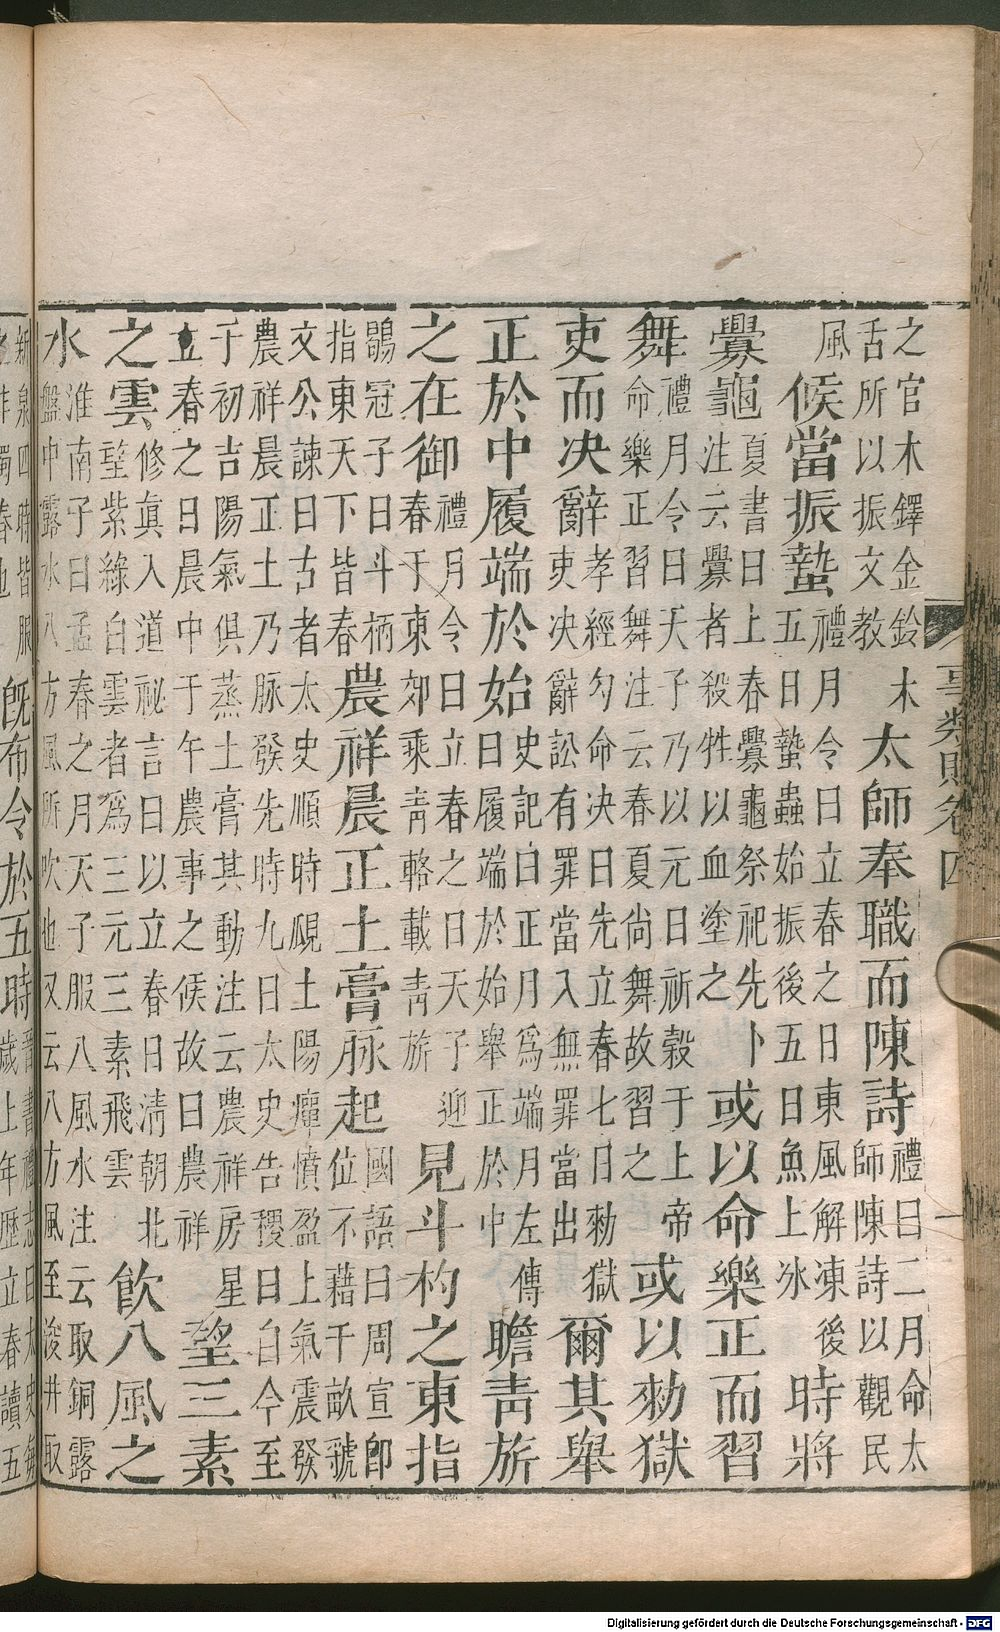 事類賦卷四
一
之官木鐸金鈴木
舌所以振文教
太師奉職而陳詩
禮曰二月命太
師陳詩以觀民
風
候當振蟄
禮月令曰立春之日東風解凍後
五日蟄蟲始振後五日魚上冰
時將
釁龜
夏書曰上春釁龜祭祀先卜
注云釁者殺牲以血塗之
或以命樂正而習
舞
禮月令曰天子乃以元日祈穀于上帝
命樂正習舞注云春夏尚舞故習之
或以勑獄
吏而决辭
孝經勾命决曰先立春七日勑獄
吏决辭訟有罪當入無罪當出
爾其舉
正於中履端於始
史記曰正月爲端月左傳
曰履端於始舉正於中
瞻靑旂
之在御
禮月令曰立春之日天子迎
春于東郊乘靑輅載靑旂
見斗杓之東指
鶡冠子曰斗柄
指東天下皆春
農祥晨正土膏脉起
國語曰周宣卽
位不藉千畝虢
文公諫曰古者太史順時覛土陽癉憤盈上氣震發
農祥晨正土乃脉發先時九日太史告稷曰自今至
于初吉陽氣俱蒸土膏其動注云農祥房星
立春之日晨中于午農事之候故曰農祥
望三素
之雲
修眞入道祕言曰以立春日淸朝北
望紫綠白雲者爲三元三素飛雲
飲八風之
水
淮南子曰孟春之月天子服八風水注云取銅露
盤中露水八方風所吹也又云八方風至浚井取
新泉四時皆服
非獨春也
旣布令於五時
晉書禮志曰太史每
歲上年歷立春讀五
Digitalisierung gefördert durch die Deutsche Forschungsgemeinschaft - DFG